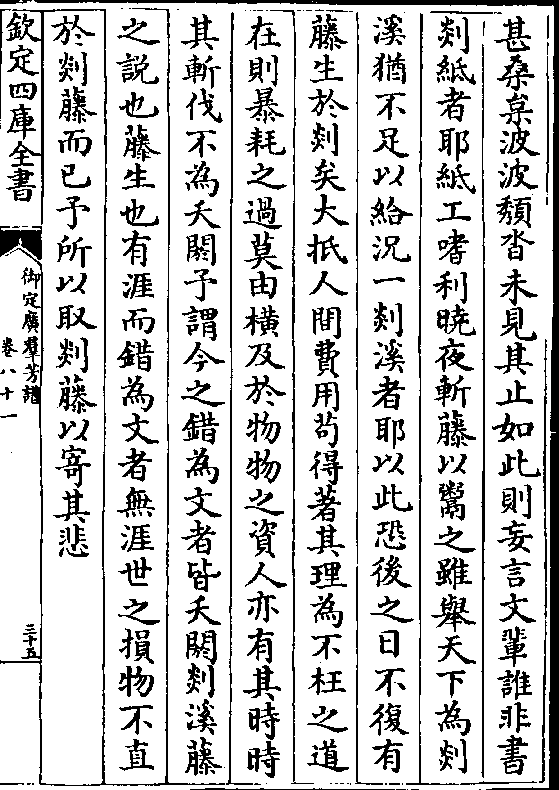 甚桑枲波波頹沓未見其止如此則妄言文輩誰非書
剡紙者耶紙工嗜利曉夜斬藤以鬻之雖舉天下為剡
溪猶不足以給況一剡溪者耶以此恐後之日不復有
藤生於剡矣大抵人間費用苟得著其理為不枉之道
在則暴耗之過莫由橫及於物物之資人亦有其時時
其斬伐不為夭閼予謂今之錯為文者皆夭閼剡溪藤
之説也藤生也有涯而錯為文者無涯世之損物不直
於剡藤而已予所以取剡藤以寄其悲
欽定四庫全書
御定廣羣芳譜
卷八十一
三十五